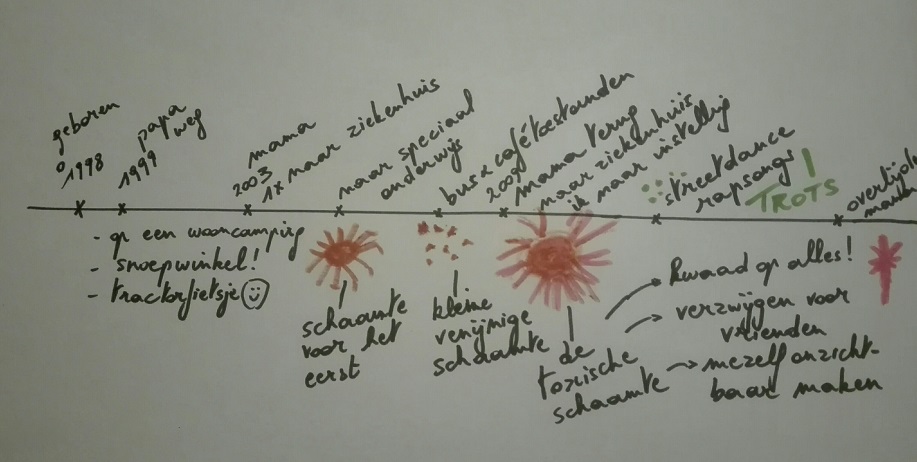 geboren
° 1998
papa
weg
1999
mama
2003 1x naar ziekenhuis
naar speciaal
onderwijs
bus & cafétoestanden
2009
mama terug
naar ziekenhuis
ik naar instelling
streetdance
rapsongs
TROTS!
overlijden
- op een wooncamping
- snoepwinkel!
- tractorfietsje
schaamte
voor het
eerst
kleine
venijnige
schaamte
de
toxische
schaamte
kwaad op alles!
verzwijgen voor
vrienden
mezelf onzicht-
baar maken